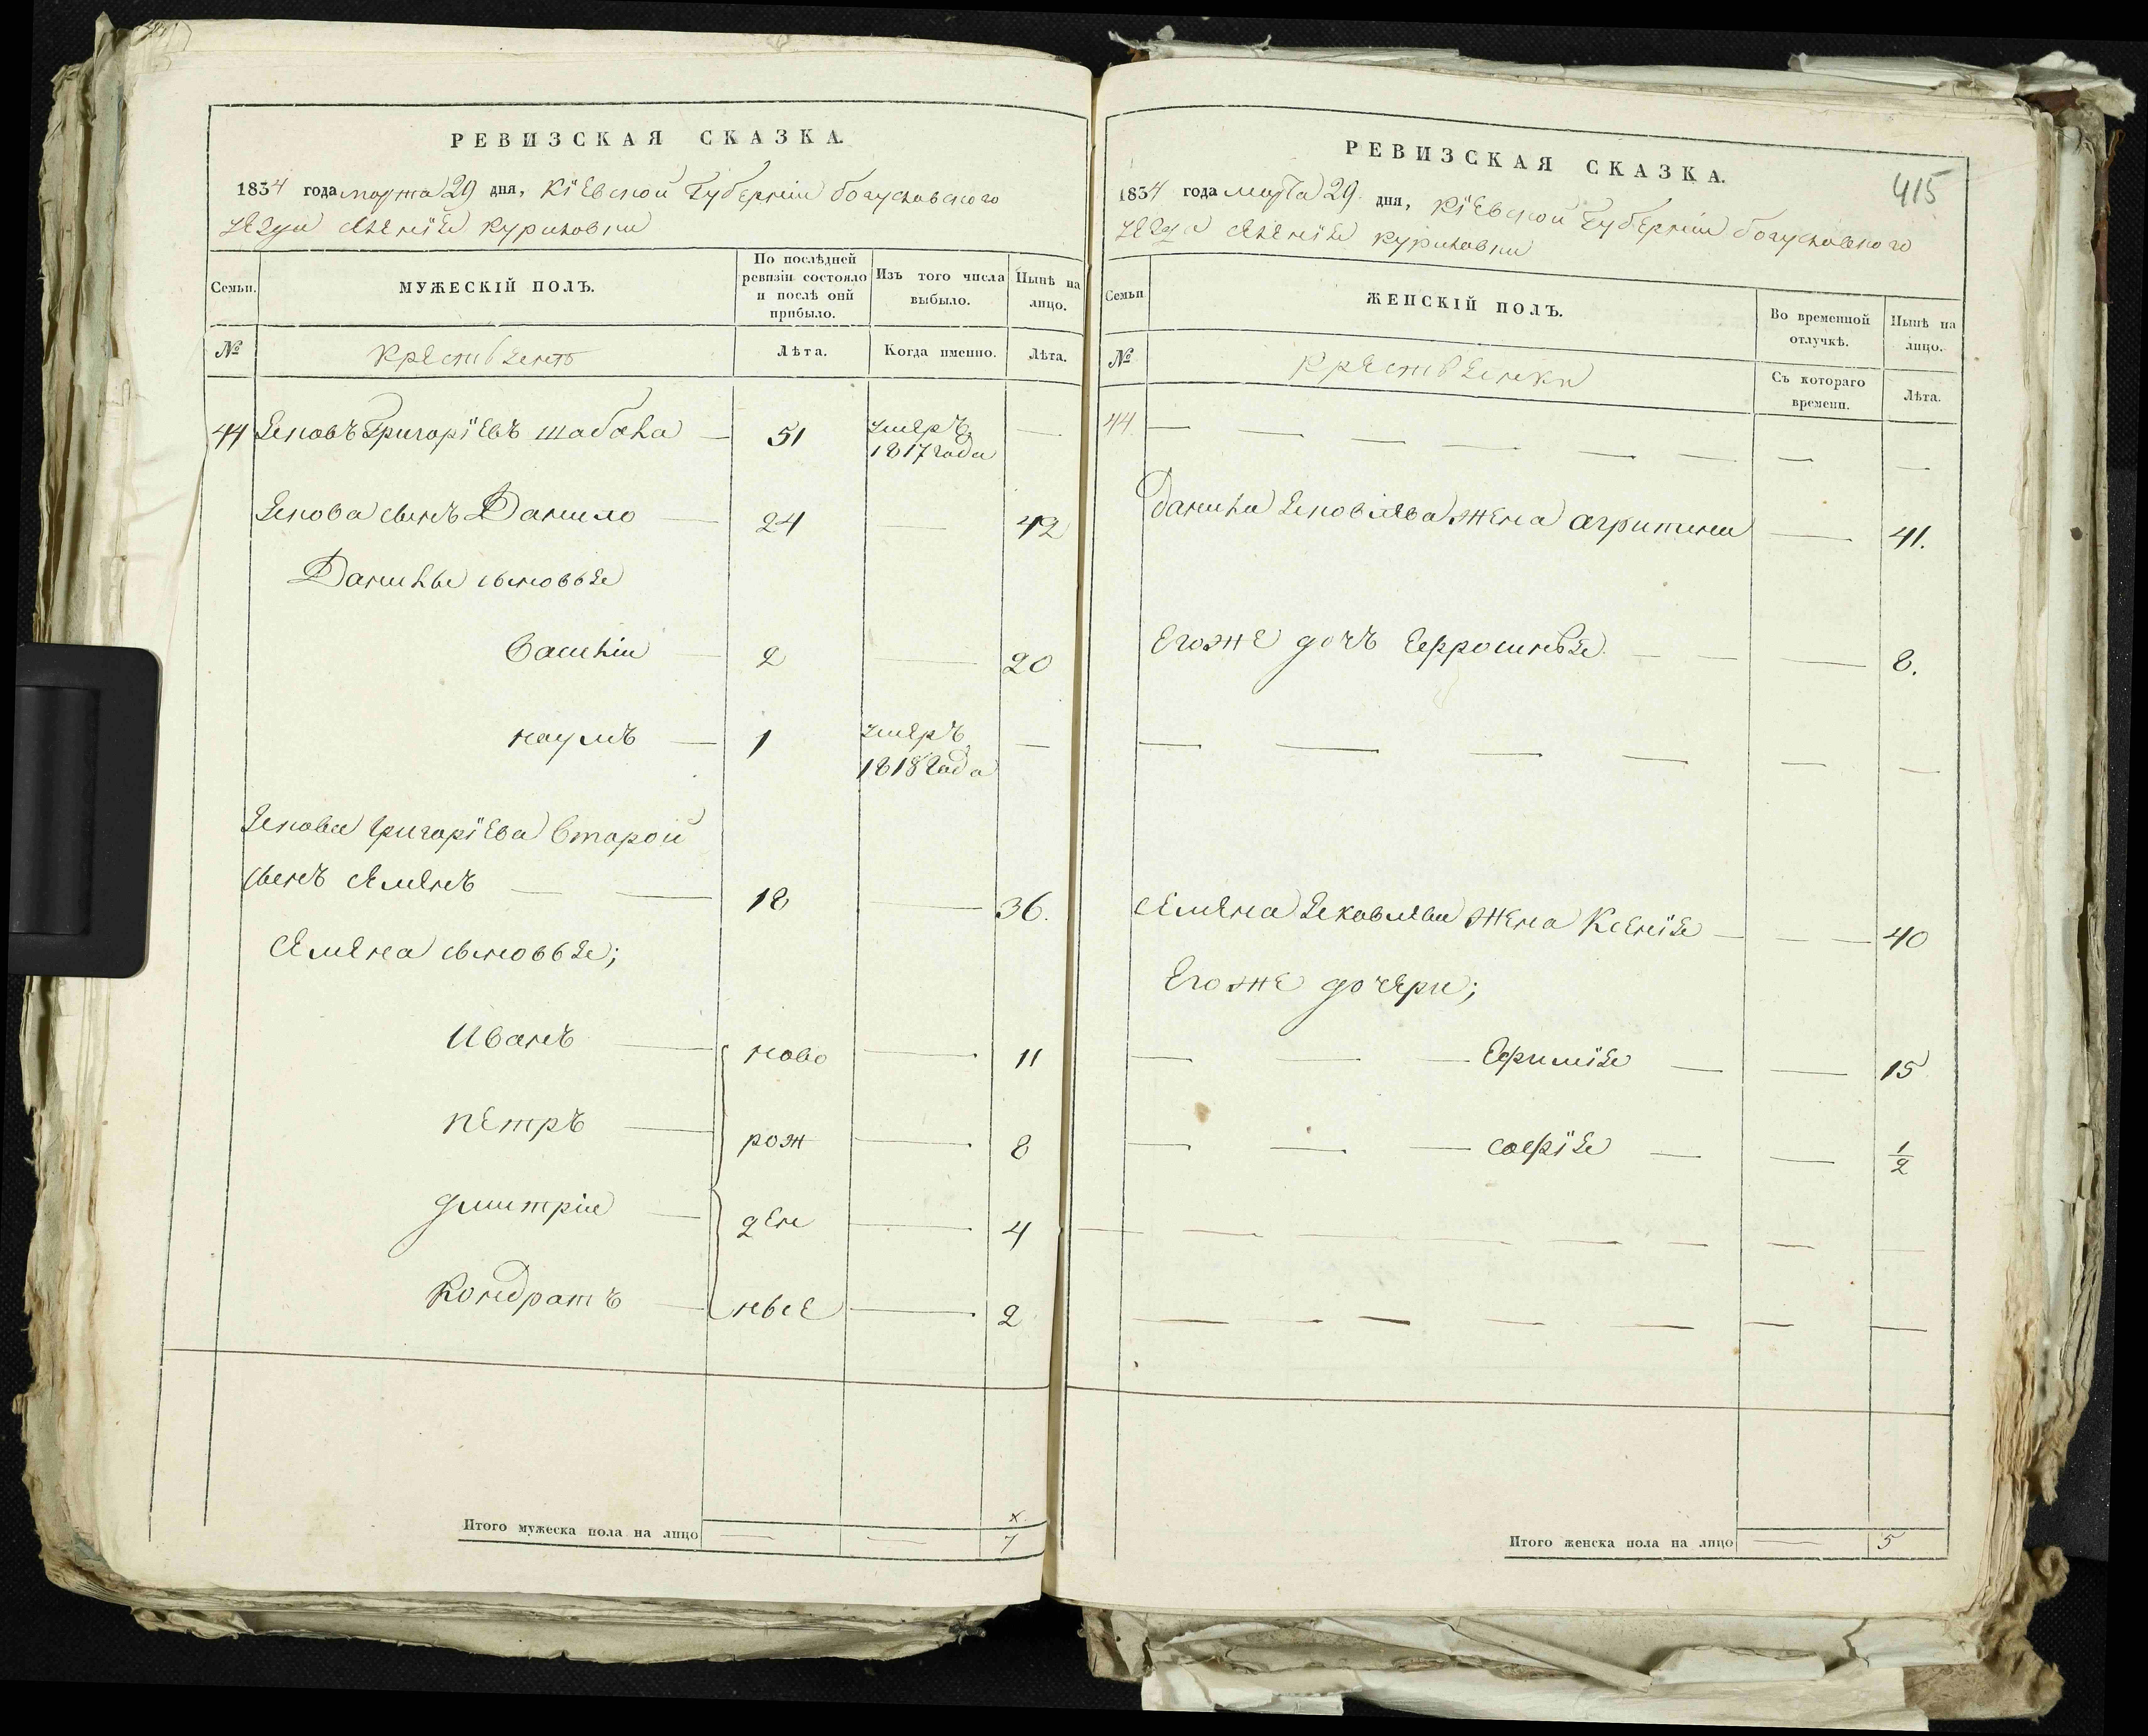 РЕВИЗСКАЯ СКАЗКА.
1834 года марта 29 дня, Кіевской Губерніи богуславского
уезда селенія Куриловки
Семьи.
МУЖЕСКІЙ ПОЛЪ.
По послѣдней ревизіи состояло и послѣ оній прибыло.
Изъ того числа выбыло.
Нынѣ на лицо.
№
Лѣта.
Когда именно.
Лѣта.
44 Яковъ Григоріевъ шабала — 51 умеръ 1817 года —
Якова сынъ Данило — 24 — 42
Данилы сыновья
василій — 2 — 20
наумъ — 1 умеръ 1818 года —
Якова григоріева второй
сынъ семенъ — — 18 — 36.
Семена сыновья;
Иванъ — ново — 11
петръ — рож — 8
дмитрій — ден — 4
Кондратъ — ные — 2
Итого мужеска пола на лицо — — 7
415
РЕВИЗСКАЯ СКАЗКА.
1834 года марта 29 дня, Кіевской Губерніи богуславского
уезда селенія куриловки
Семьи
ЖЕНСКІЙ ПОЛЪ.
Во временной отлучкѣ.
Нынѣ на лицо.
№
Съ котораго времени.
Лѣта.
44. — — — — — — — —
данила Яковлева жена агрипина — 41.
Егоже дочъ Ефросинья — — — 8.
— — — — — —
семена Яковлева жена Ксенія — — — 40
Егоже дочери;
— — — Ефимія — — 15
— — — софія — — 1/2
— — — — — — — — —
— — — — — — —
Итого женска пола на лицо — 5